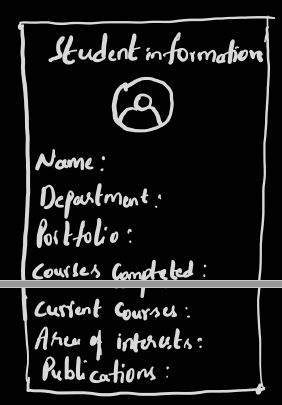 Student information
Name:
Department:
Portfolio:
Courses Completed:
Current Courses:
Area of interests:
Publications: